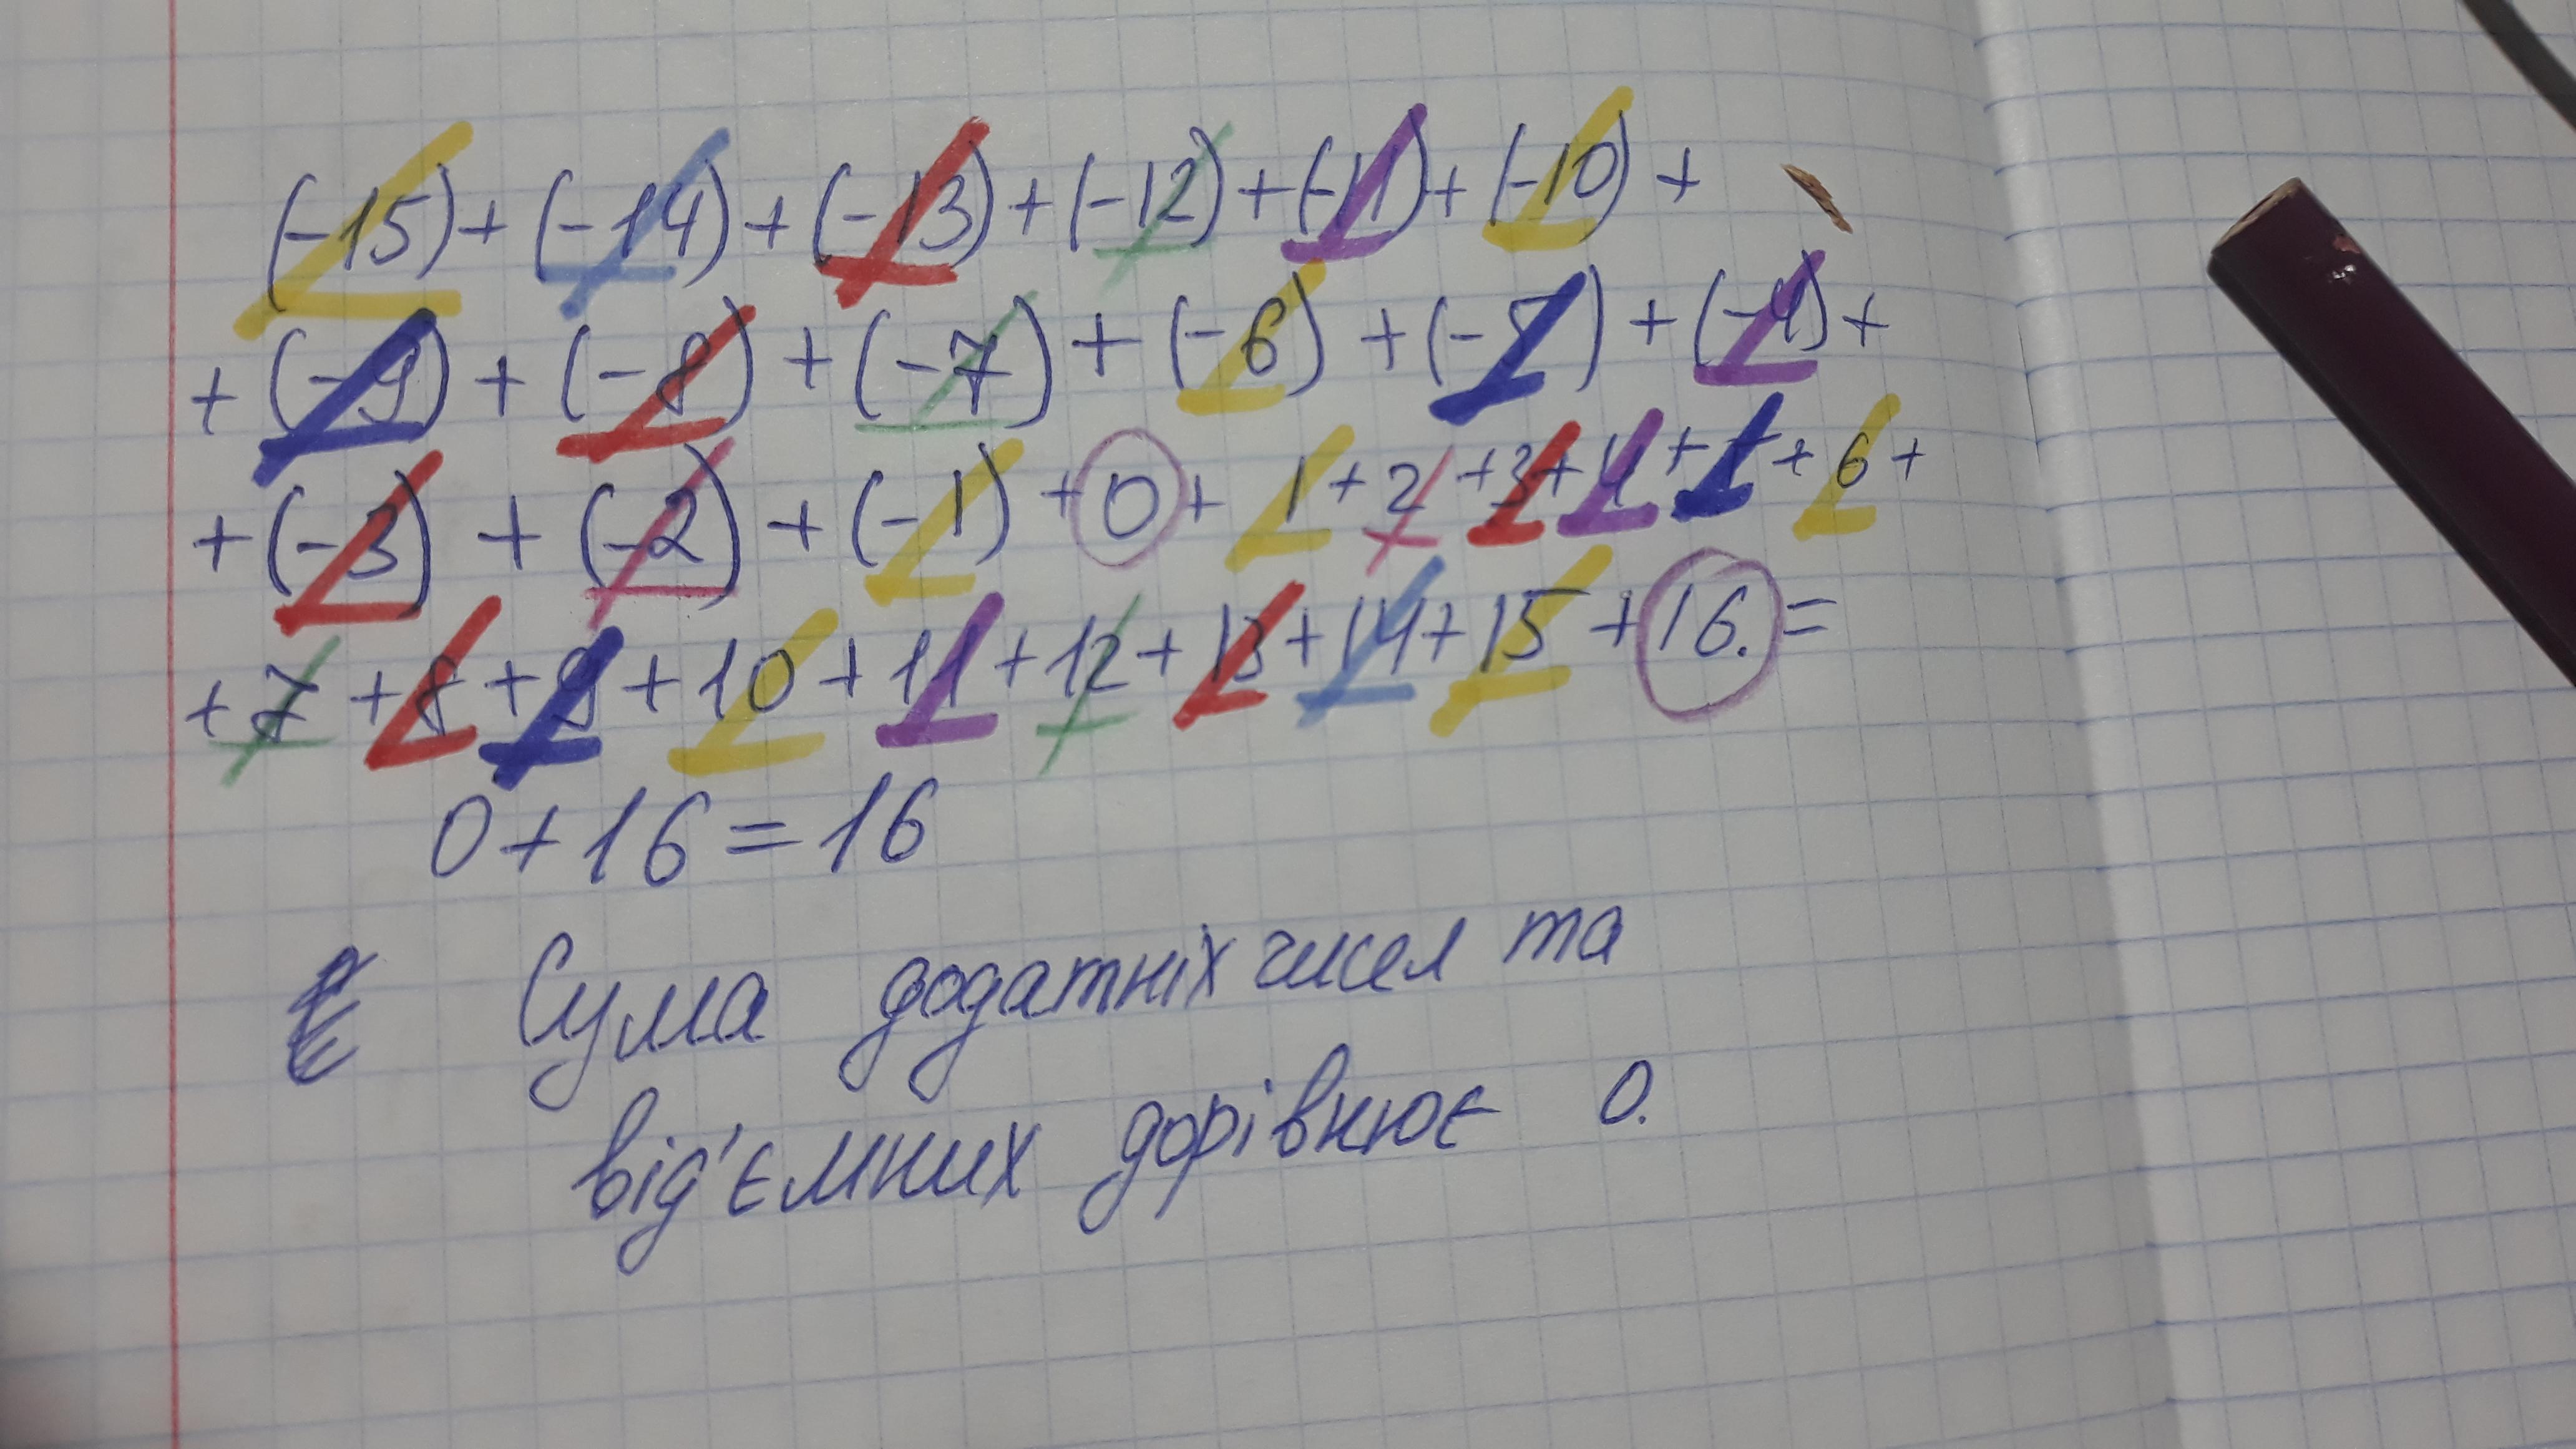 (-15)+(-14)+(-13)+(-12)+(-11)+(-10)+
+(-9)+(-8)+(-7)+(-6)+(-5)+(-4)+
+(-3)+(-2)+(-1)+0+1+2+3+4+5+6+
+7+8+9+10+11+12+13+14+15+16.=
0+16=16
Сума додатніх чисел та
від'ємних дорівнює 0.